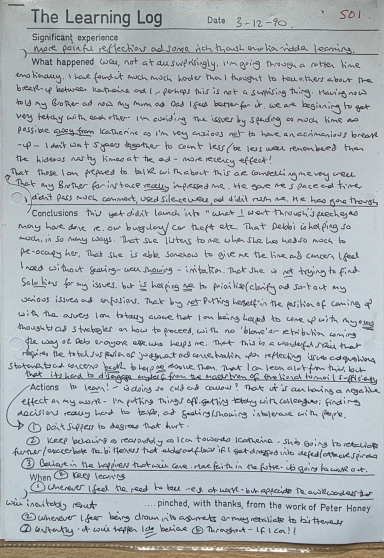 The Learning Log Date 3-12-90. 501
Significant experience
more painful reflections and some rich, harsh emotion-ridden learning.
What happened Well, not at all surprisingly, I'm going through a rotten time
emotionally. I have found it much much harder than I thought to tell others about the
break-up between Katherine and I - perhaps this is not a surprising thing. Having now
told my Brother and now my mum and Dad I feel better for it. We are beginning to get
very tetchy with each other. I'm avoiding the issues by spending as much time as
possible away from Katherine as I'm very anxious not to have an acrimonious break
-up - I don't want 5 years together to count less/be less well remembered than
the hideous nasty times at the end - more recency effect!
That those I am prepared to talk with about this are comforting me very well
That my Brother for instance really impressed me. He gave me space and time,
didn't pass much comment, used silence well and didn't rush me. He has gone through
Conclusions this yet didn't launch into "what I went through" speeches as
many have done re. our burglary/car theft etc. That Debbi is helping so
much, in so many ways. That she listens to me when she has had so much to
pre-occupy her. That she is able somehow to give me the time and concern I feel
I need without seeming - even showing - irritation. That she is not trying to find
Solutions for my issues, but is helping me to prioritise/clarify and sort out my
various issues and confusions. That by not putting herself in the position of coming up
with the answers I am totally aware that I am being helped to come up with my own
thoughts and strategies on how to proceed, with no 'blame' or retribution coming
the way of Debs or anyone else who helps me. That this is a wonderful skill that
requires the total suspension of judgment and concentration upon reflecting issues and questions
statements and concerns back to help me resolve them. That I can learn a lot from this, but
that it's hard to disengage myself from the maelstrom of emotional turmoil sufficiently
Actions to learn! - is doing so cold and callous? That it is all having a negative
effect on my work - I'm putting things off, getting tetchy with colleagues, finding
decisions really hard to take, and feeling/showing intolerance with people.
① Don't suppress or degrade that hurt.
② Keep behaving as reasonably as I can towards Katherine - she's going to retaliate
further/exacerbate the bitterness that exists
③ Believe in the happiness that will come. Have faith in the future - it's going to work out.
When ④ Keep learning
① Wherever I feel the need to - e.g. at work - but appreciate the awkwardness that
will inevitably result ....pinched, with thanks, from the work of Peter Honey
② Whenever I feel being drawn into arguments or may retaliate to bitterness
③ Constantly - it will happen, I do believe ④ Throughout - if I can!!